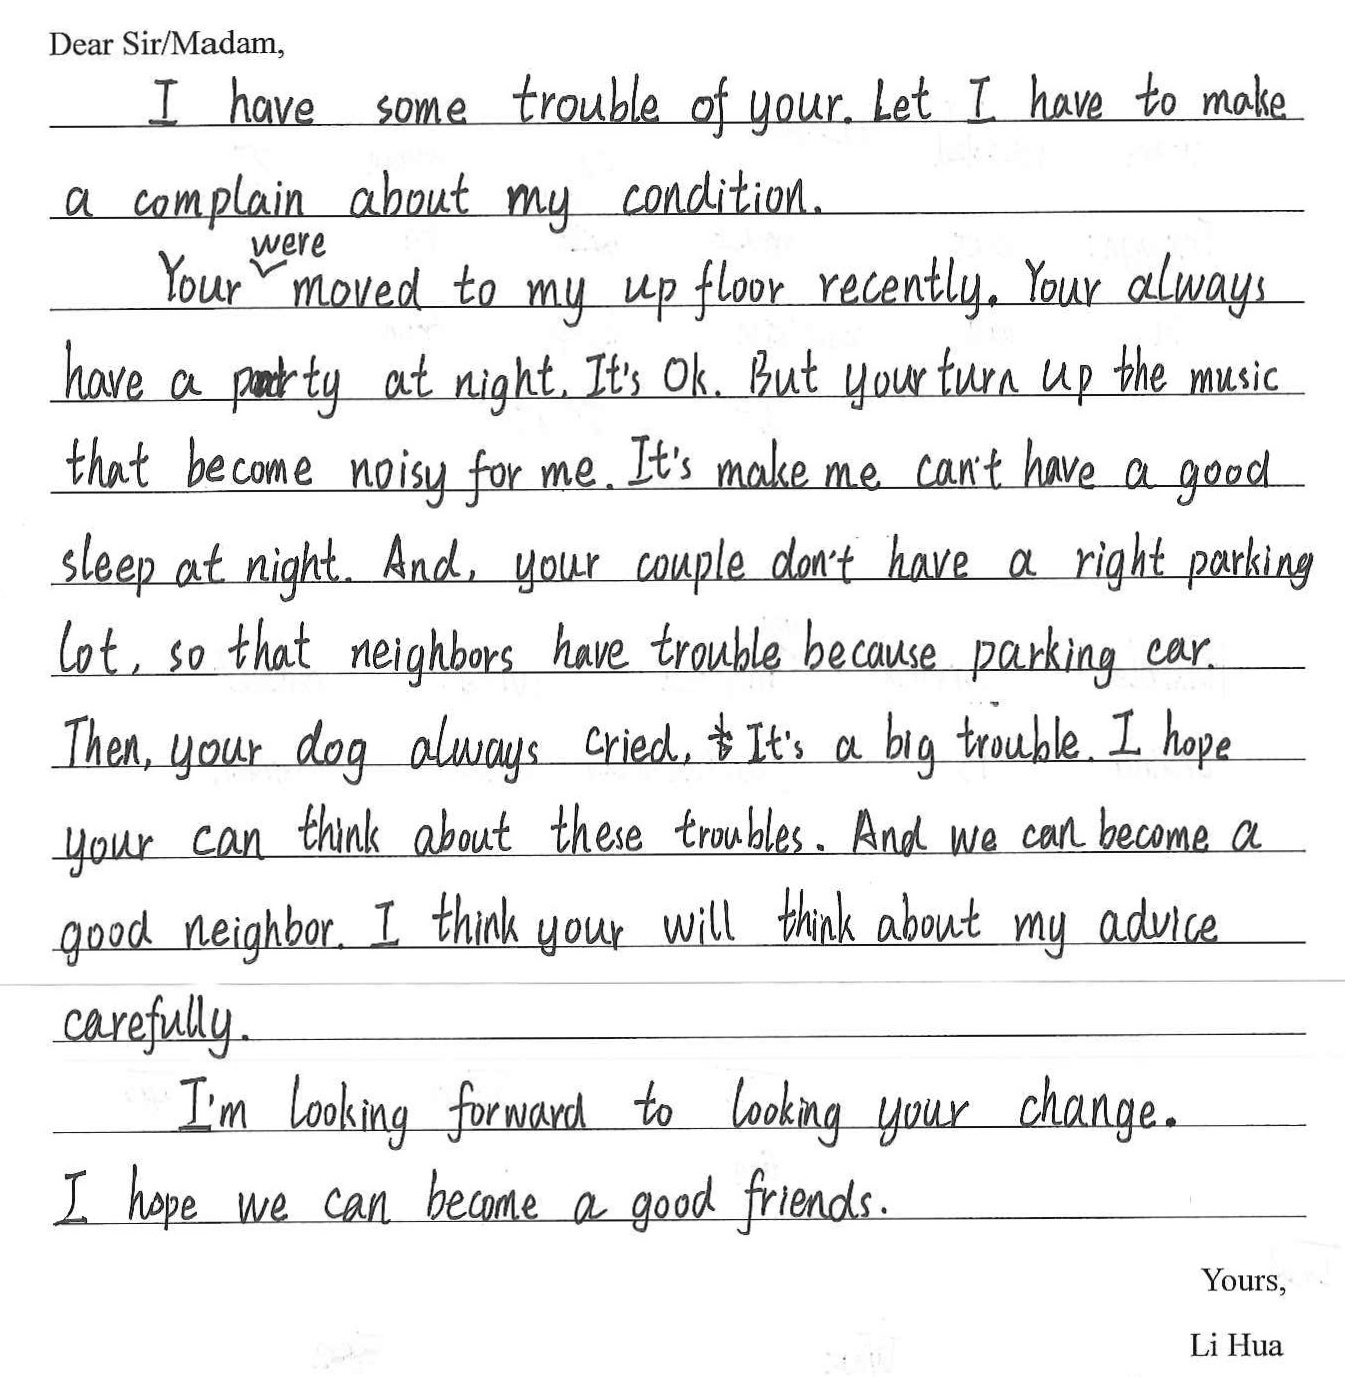 Dear Sir/Madam,
I have some trouble of your. Let I have to make
a complain about my condition.
were
Your moved to my up floor recently. Your always
have a party at night. It's Ok. But your turn up the music
that become noisy for me. It's make me can't have a good
sleep at night. And, your couple don't have a right parking
lot, so that neighbors have trouble because parking car.
Then, your dog always cried, It's a big trouble. I hope
your can think about these troubles. And we can become a
good neighbor. I think your will think about my advice
carefully.
I'm looking forward to looking your change.
I hope we can become a good friends.
Yours,
Li Hua